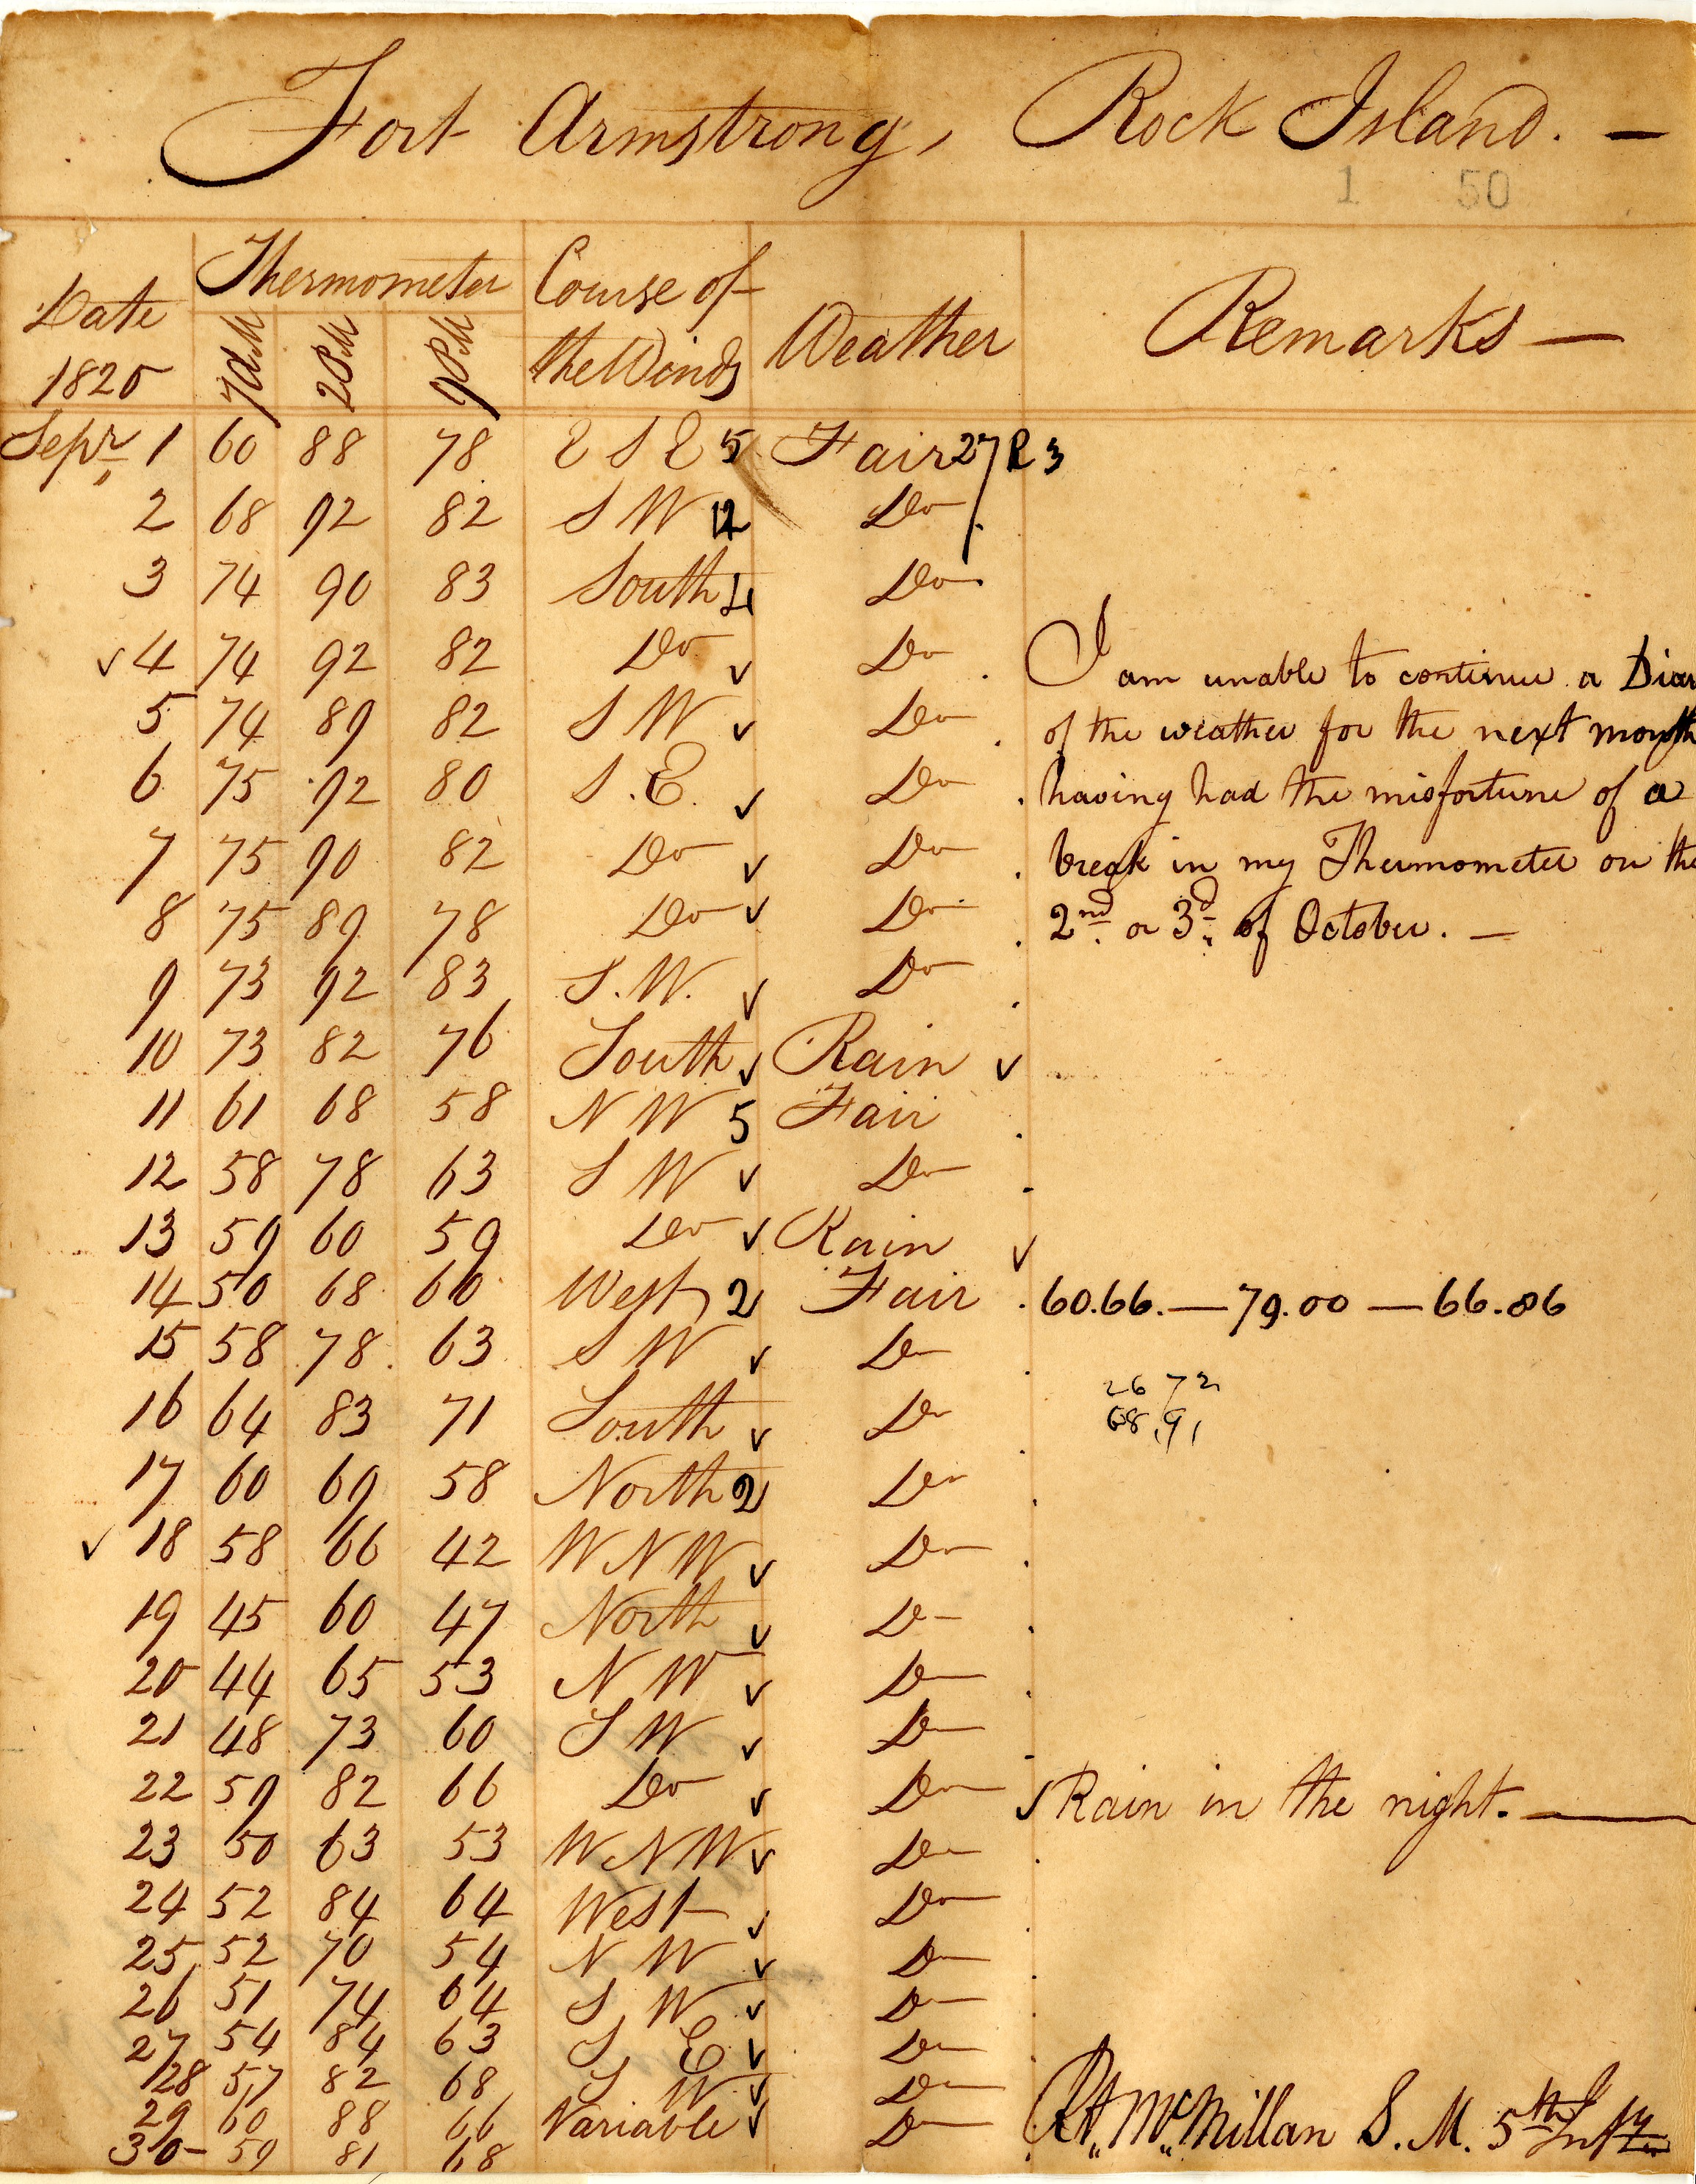 Fort Armstrong, Rock Island. —
1 50
Date 1820 Thermometer Course of the Winds Weather Remarks —
7 A.M 2 P.M 9 P.M
Sepr. 1 60 88 78 E S E 5 Fair 27 R 3
2 68 92 82 S W 12 Do
3 74 90 83 South 4 Do
✓ 4 74 92 82 Do ✓ Do
I am unable to continue a Diar
5 74 89 82 S W ✓ Do
of the weather for the next month
6 75 92 80 S. E. ✓ Do
having had the misfortune of a
7 75 90 82 Do ✓ Do
break in my Thermometer on the
8 75 89 78 Do ✓ Do
2nd. or 3d. of October. —
9 73 92 83 S. W. ✓ Do
10 73 82 76 South ✓ Rain ✓
11 61 68 58 N W 5 Fair
12 58 78 63 S W ✓ Do
13 59 60 59 Do ✓ Rain ✓
14 50 68 60 West 2 Fair 60.66. — 79.00 — 66.86
15 58 78 63 S W ✓ Do
26 72
16 64 83 71 South ✓ Do
68.91
17 60 69 58 North 2 Do
✓ 18 58 66 42 W N W ✓ Do
19 45 60 47 North ✓ Do
20 44 65 53 N W ✓ Do
21 48 73 60 S W ✓ Do
22 59 82 66 Do ✓ Do ✓ Rain in the night. —
23 50 63 53 W N W ✓ Do
24 52 84 64 West ✓ Do
25 52 70 54 N W ✓ Do
26 51 74 64 S W ✓ Do
27 54 84 63 S E ✓ Do
28 57 82 68 S W ✓ Do
29 60 88 66 Variable ✓ Do
Rt. McMillan S. M. 5th Infty
30 59 81 68